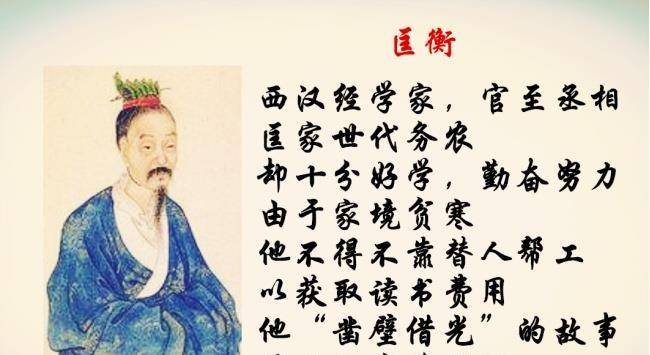 匡衡
西汉经学家，官至丞相
匡家世代务农
却十分好学，勤奋努力
由于家境贫寒
他不得不靠替人帮工
以获取读书费用
他“凿壁借光”的故事